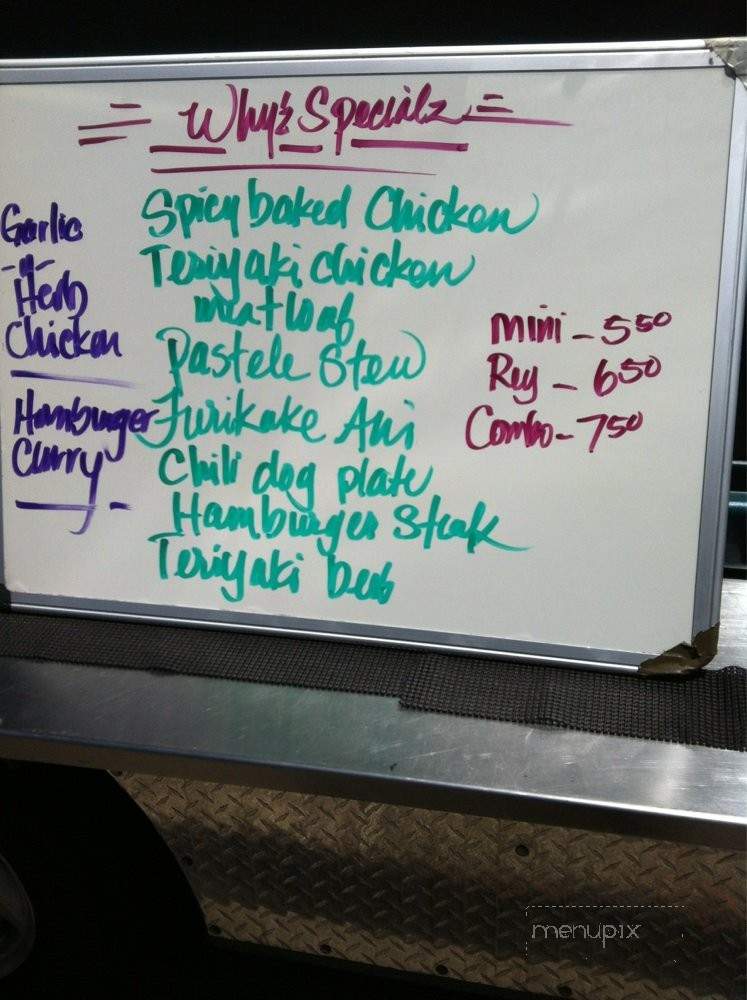 Why'z Specialz
Garlic
-n-
Herb
Chicken
Hamburger
Curry
Spicy baked Chicken
Teriyaki chicken
meatloaf
Pastele Stew
Furikake Ahi
Chili dog plate
Hamburger Steak
Teriyaki beef
Mini - 5 50
Reg - 6 50
Combo - 7 50
menupix